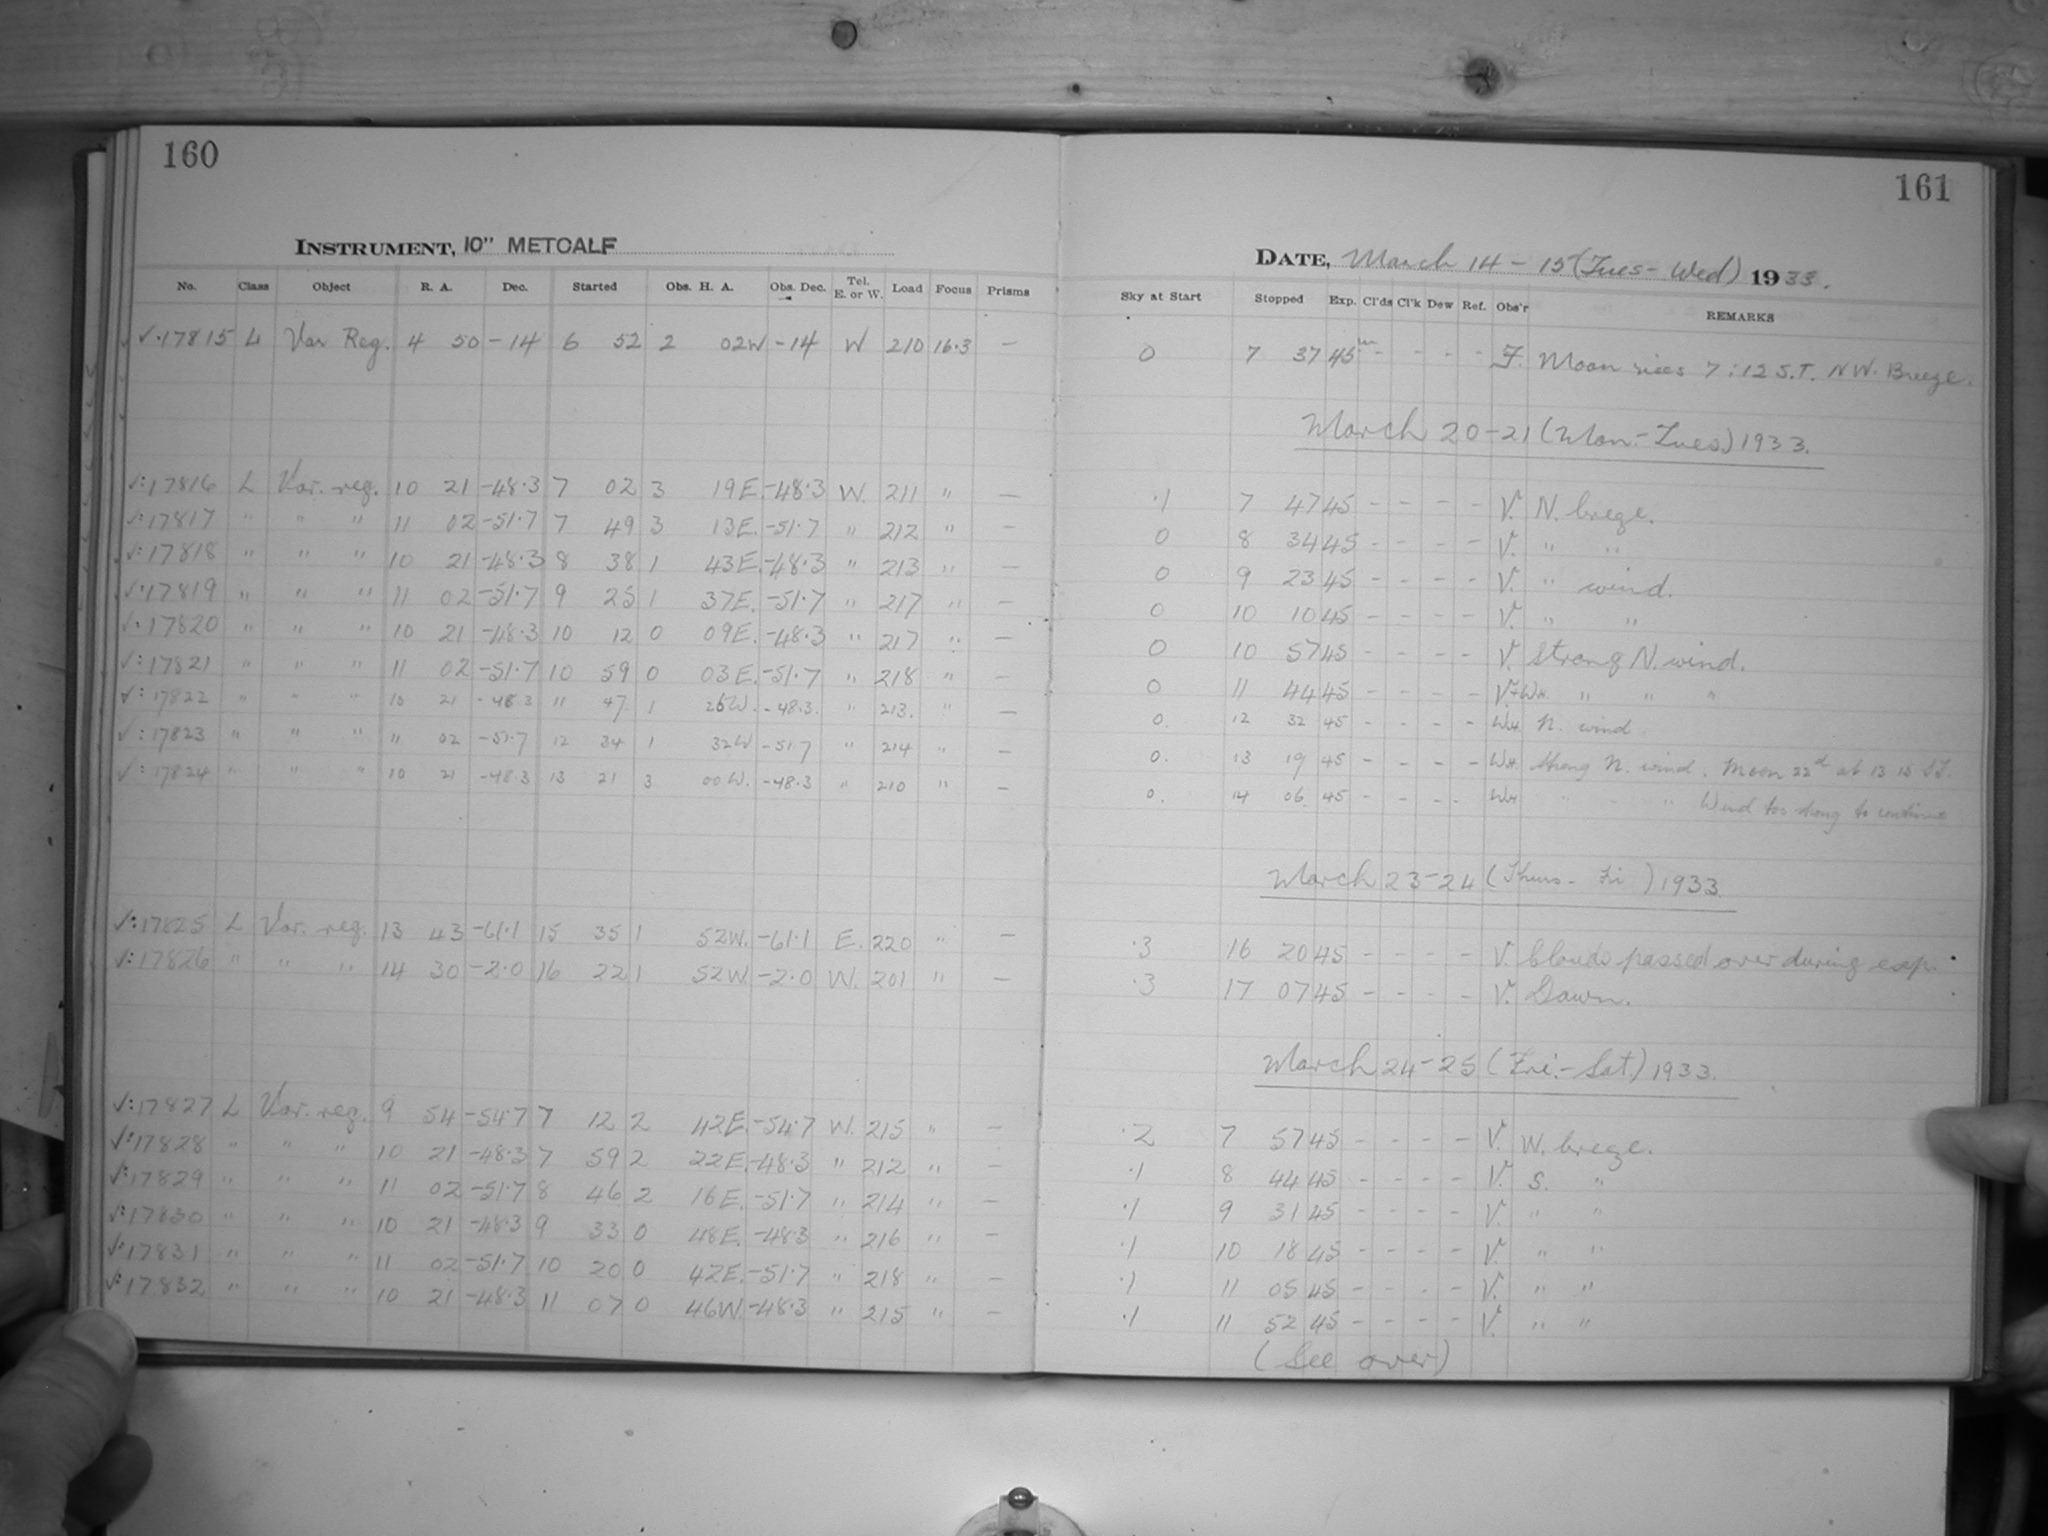 160
INSTRUMENT, 10" METCALF
No. Class Object R. A. Dec. Started Obs. H. A. Obs. Dec. Tel. E. or W. Load Focus Prisms
17815 L Var Reg. 4 50 -14 6 52 2 02W -14 W 210 16.3 —
17816 L Var. reg. 10 21 -48.3 7 02 3 19E. -48.3 W. 211 " —
17817 " " " 11 02 -51.7 7 49 3 13E. -51.7 " 212 " —
17818 " " " 10 21 -48.3 8 38 1 43E. -48.3 " 213 " —
17819 " " " 11 02 -51.7 9 25 1 37E. -51.7 " 217 " —
17820 " " " 10 21 -48.3 10 12 0 09E. -48.3 " 217 " —
17821 " " " 11 02 -51.7 10 59 0 03E. -51.7 " 218 " —
17822 " " " 10 21 -48.3 11 47 1 26W. -48.3. " 213. " —
17823 " " " " 02 -51.7 12 34 1 32W -51.7 " 214 " —
17824 " " " 10 21 -48.3 13 21 3 00W. -48.3 " 210 " —
17825 L Var. reg. 13 43 -61.1 15 35 1 52W. -61.1 E. 220 " —
17826 " " " 14 30 -2.0 16 22 1 52W -2.0 W. 201 " —
17827 L Var. reg. 9 54 -54.7 7 12 2 42E. -54.7 W. 215 " —
17828 " " " 10 21 -48.3 7 59 2 22E. -48.3 " 212 " —
17829 " " " 11 02 -51.7 8 46 2 16E. -51.7 " 214 " —
17830 " " " 10 21 -48.3 9 33 0 48E. -48.3 " 216 " —
17831 " " " 11 02 -51.7 10 20 0 42E. -51.7 " 218 " —
17832 " " " 10 21 -48.3 11 07 0 46W. -48.3 " 215 " —
161
DATE, March 14 - 15 (Tues - Wed) 1933.
Sky at Start Stopped Exp. Cl'ds Cl'k Dew Ref. Obs'r REMARKS
0 7 37 45m - - - - F. Moon rises 7:12 S.T. NW. Breeze.
March 20-21 (Mon.-Tues.) 1933.
.1 7 47 45 - - - - V. N. breeze.
0 8 34 45 - - - - V. " "
0 9 23 45 - - - - V. " wind.
0 10 10 45 - - - - V. " "
0 10 57 45 - - - - V. Strong N. wind.
0 11 44 45 - - - - V.+WH. " " "
0. 12 32 45 - - - - WH N. wind
0. 13 19 45 - - - - WH. Strong N. wind. Moon 22d at 13 15 ST.
0. 14 06 45 - - - - WH " " " Wind too strong to continue
March 23-24 (Thurs- Fri) 1933.
.3 16 20 45 - - - - V. Clouds passed over during exp.
.3 17 07 45 - - - - V. Dawn.
March 24-25 (Fri.-Sat.) 1933.
.2 7 57 45 - - - - V. W. breeze.
.1 8 44 45 - - - - V. S. "
.1 9 31 45 - - - - V. " "
.1 10 18 45 - - - - V. " "
.1 11 05 45 - - - - V. " "
.1 11 52 45 - - - - V. " "
(See over)